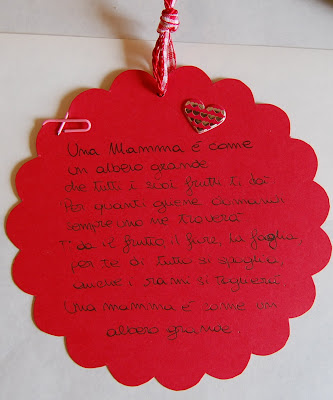 Una Mamma è come
un albero grande
che tutti i suoi frutti ti dà:
Per quanti gliene domandi
sempre uno ne troverà
T'dà il frutto, il fiore, la foglia,
per te di tutto si spoglia,
anche i rami si toglierà
Una mamma è come un
albero grande.